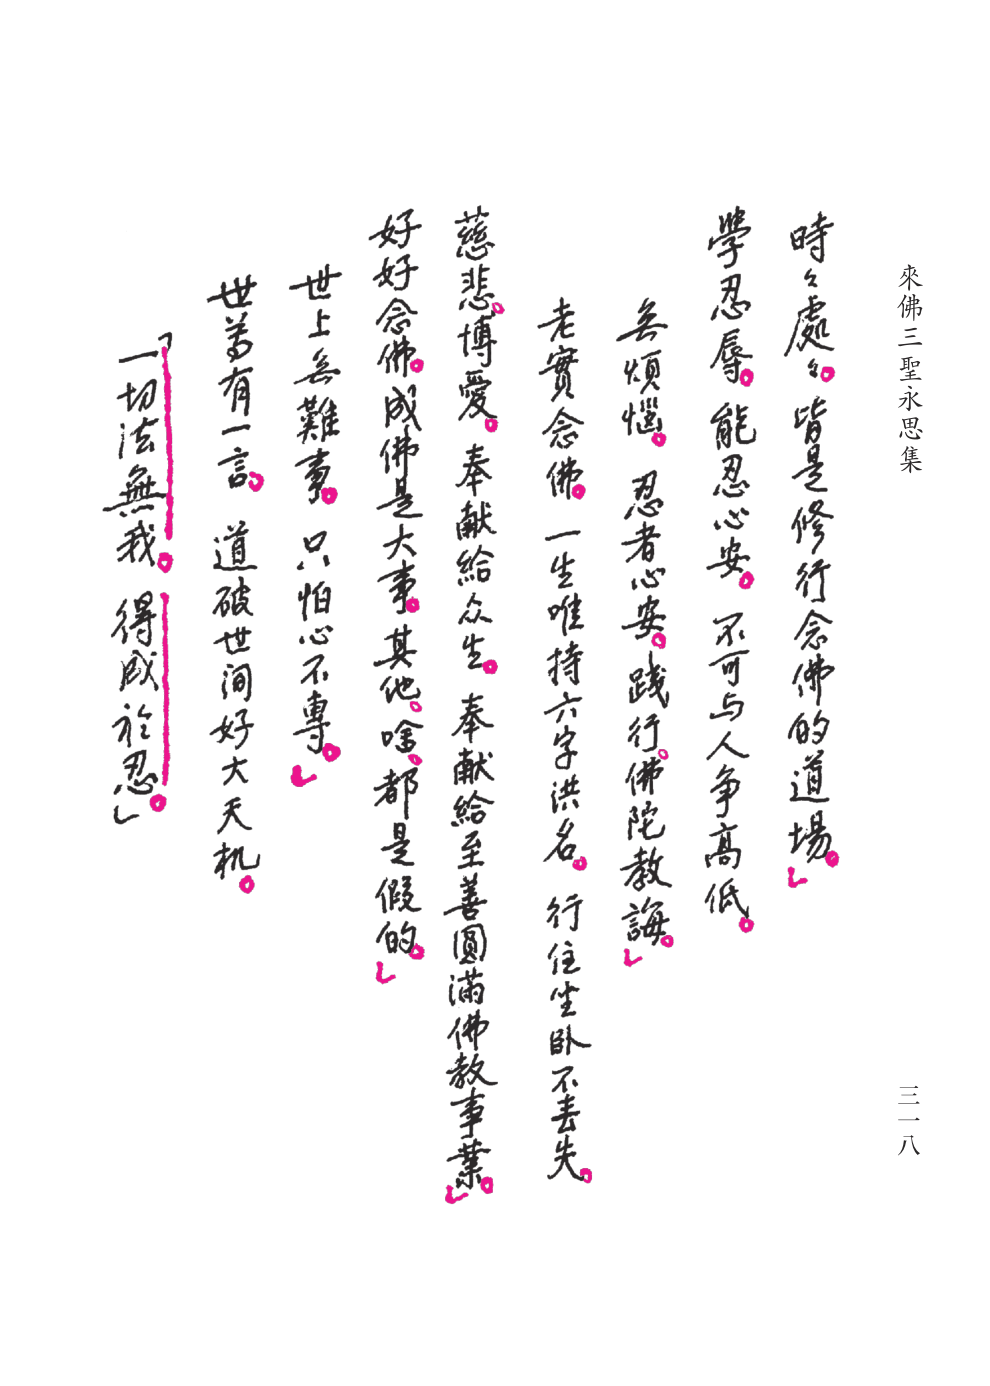 來佛三聖永思集
時々處々。皆是修行念佛的道場。
學忍辱。能忍心安。不可与人争高低。
无煩惱。忍者心安。踐行。佛陀教誨。
老實念佛。一生唯持六字洪名。行住坐卧不丢失。
慈悲。博愛。奉献給众生。奉献給至善圓滿佛教事業。
好好念佛。成佛是大事。其他。啥。都是假的。
世上无難事。只怕心不專。
世尊有一言。道破世间好大天机。
「一切法無我。得成於忍。」
三一八